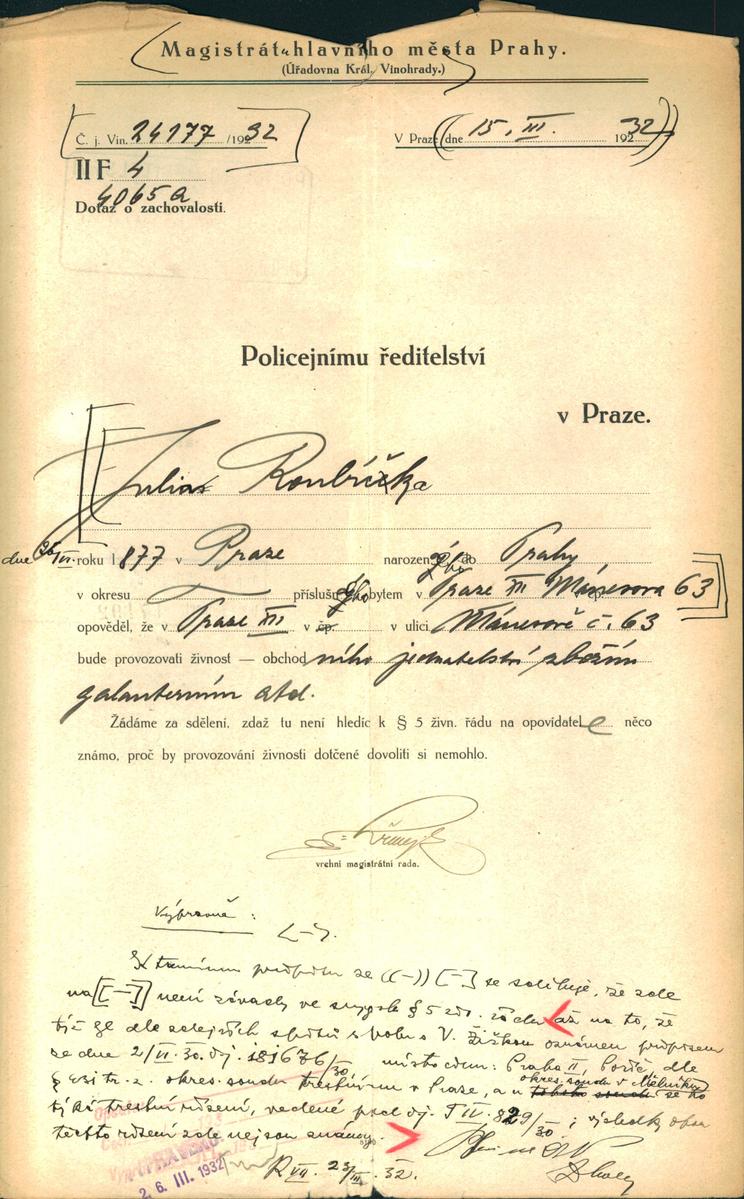 Magistrát hlavního města Prahy.
(Úřadovna Král. Vinohrady.)
Č. j. Vin. 24177 /1932
V Praze dne 15. III. 1932
II F 4
4065a
Dotaz o zachovalosti.
Policejnímu ředitelství
v Praze.
Julia Roubíčka
dne VI. roku 1877 v Praze narozeného do Prahy
v okresu příslušného bytem v Praze XII Mánesova čp. 63
opověděl, že v Praze XII v čp. v ulici Mánesově č. 63
bude provozovati živnost — obchodního jednatelství zbožím
galanterním atd.
Žádáme za sdělení, zdaž tu není hledíc k § 5 živn. řádu na opovídatele něco
známo, proč by provozování živnosti dotčené dovoliti si nemohlo.
vrchní magistrátní rada.
Výpravně :
se sděluje, že zde
na [—] není závady ve smyslu § 5 řádu až na to, že
týž je dle zdejších spisů spolu s V. oznámen přípisem
ze dne 2/VI. 30. čj. 181676/30 Praha II, Poříč, dle
§ tr. z. okres. soudu trestnímu v Praze, a u okres. soudu v Mělníku se ho
týká trestní řízení, vedené pod čj. T IV. 829/30; výsledky obou
těchto řízení zde nejsou známy.
VII. 23/III. 32.
26. III. 1932